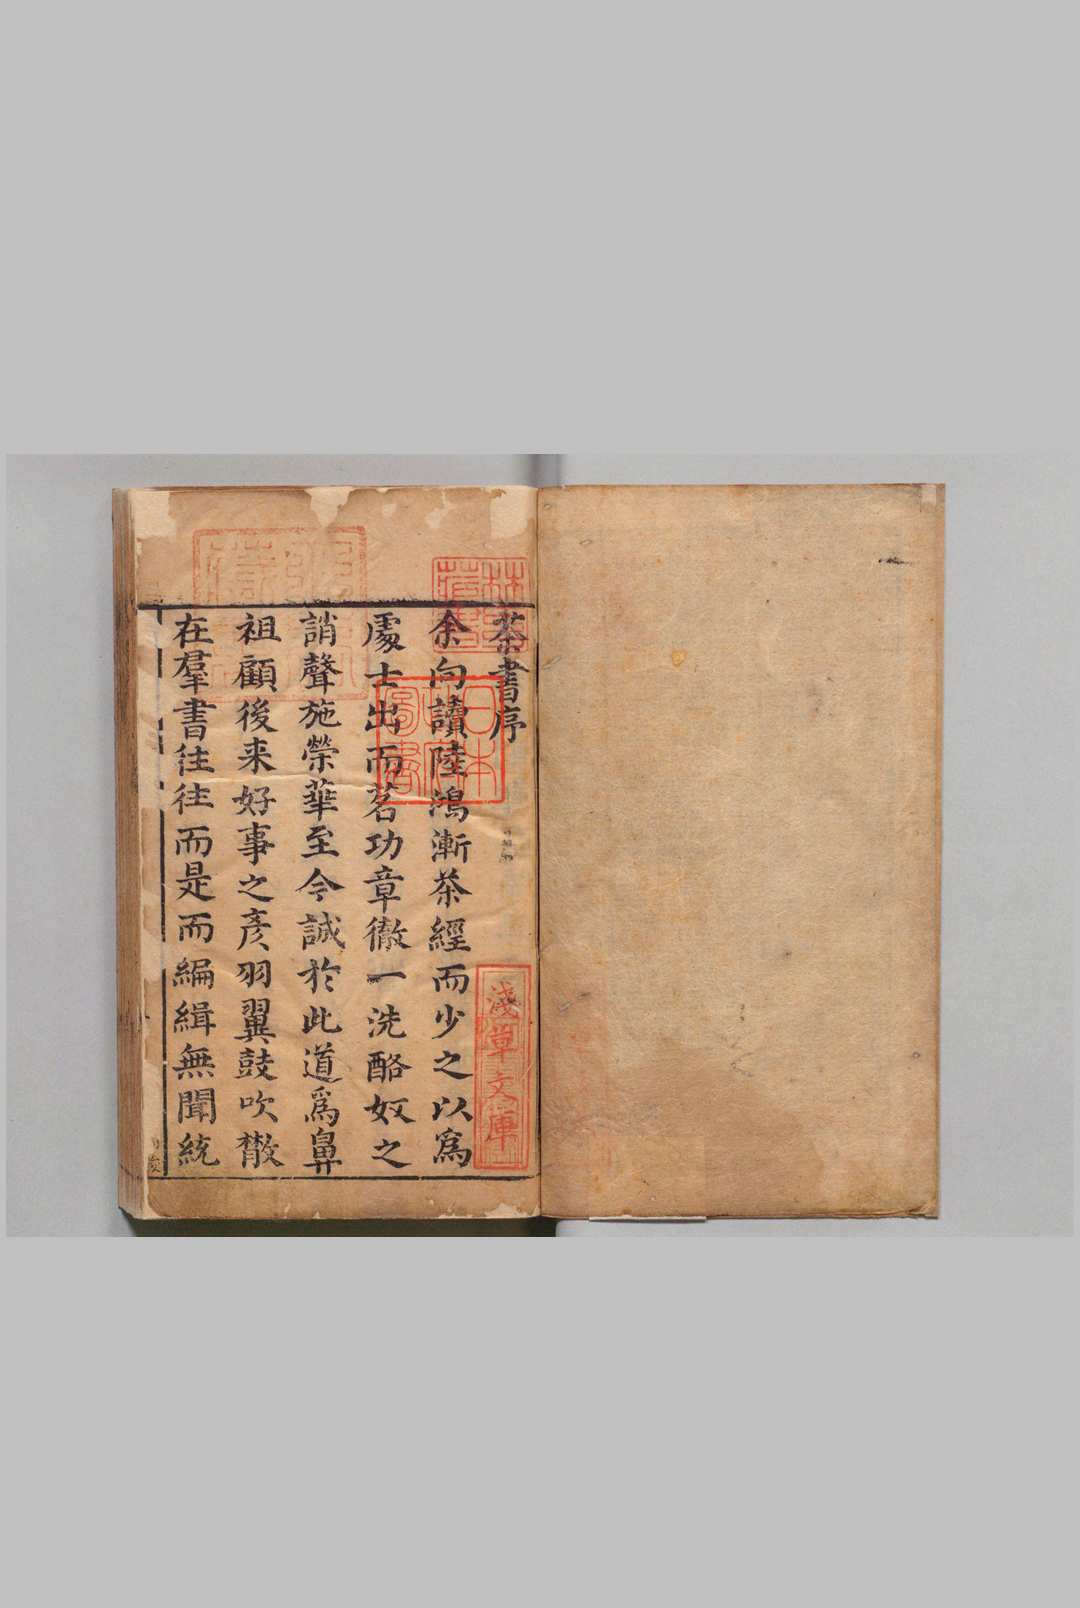 茶書序
余向讀陸鴻漸茶經而少之以爲
處士出而茗功章徹一洗酪奴之
誚聲施榮華至今誠於此道爲鼻
祖顧後来好事之彦羽翼鼓吹散
在羣書往往而是而編緝無聞統
林氏藏書
日本政府圖書
淺草文庫